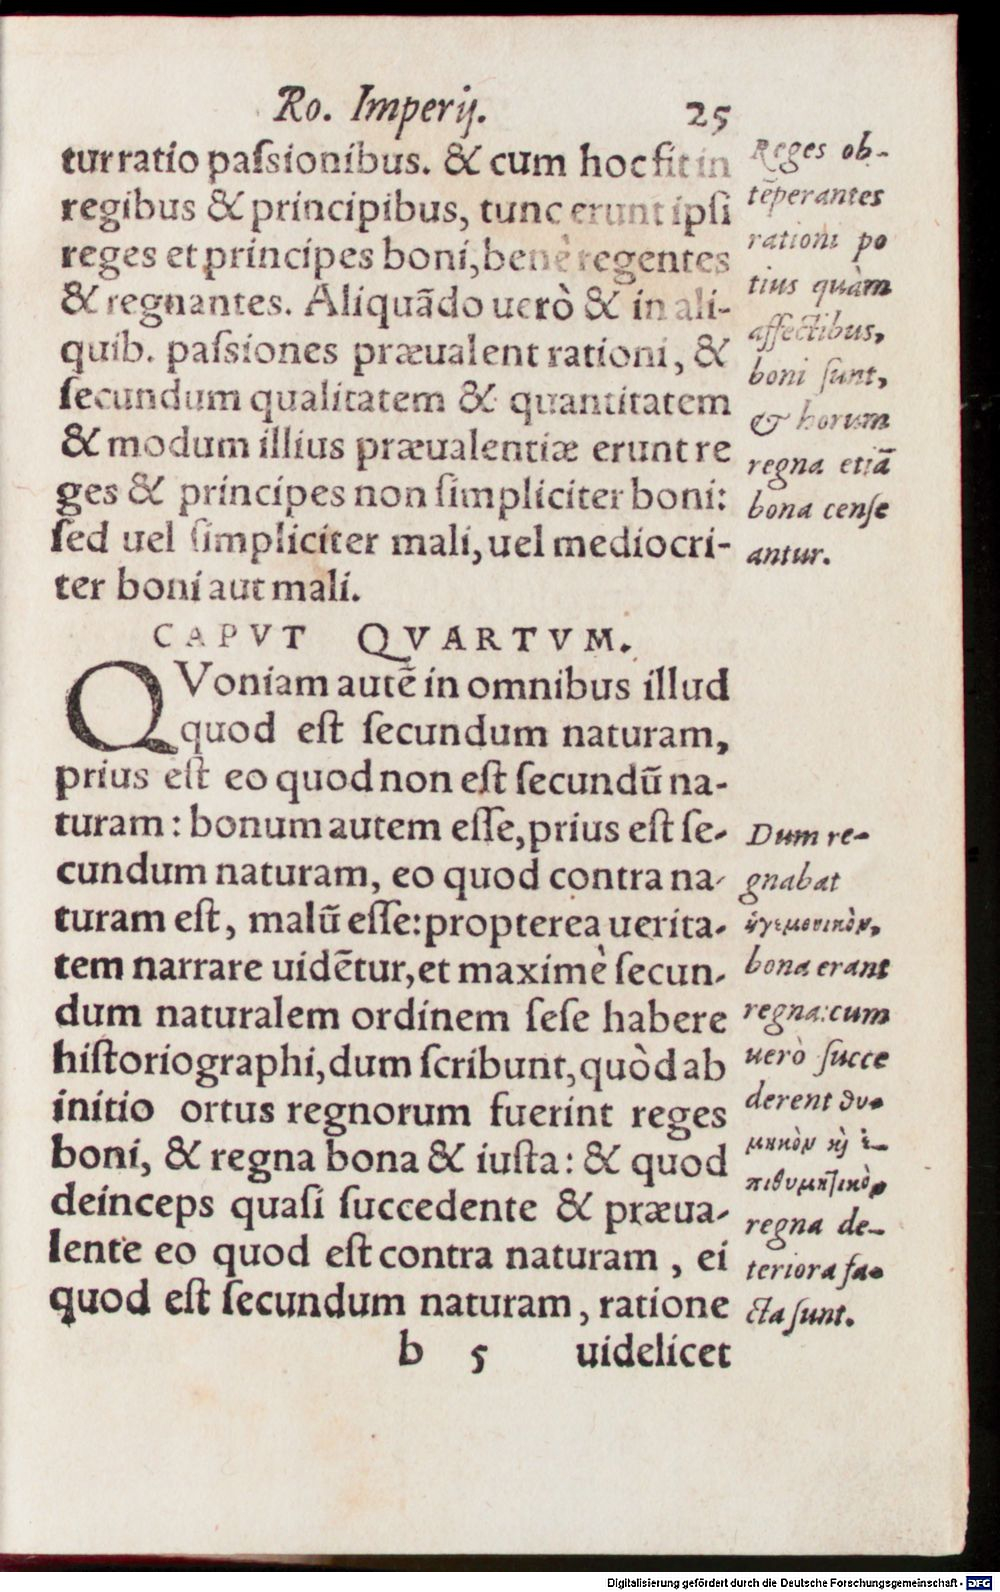 Ro. Imperij. 25
tur ratio paſsionibus. & cum hoc fit in
regibus & principibus, tunc erunt ipſi
reges et principes boni, benè regentes
& regnantes. Aliquãdo uerò & in ali-
quib. paſsiones præualent rationi, &
ſecundum qualitatem & quantitatem
& modum illius præualentiæ erunt re
ges & principes non ſimpliciter boni:
ſed uel ſimpliciter mali, uel mediocri-
ter boni aut mali.
Reges ob-
tẽperantes
rationi po
tius quàm
affectibus,
boni ſunt,
& horum
regna etiã
bona cenſe
antur.
CAPVT QVARTVM.
QVoniam autẽ in omnibus illud
quod est ſecundum naturam,
prius est eo quod non est ſecundũ na-
turam: bonum autem eſſe, prius est ſe-
cundum naturam, eo quod contra na-
turam est, malũ eſſe: propterea uerita-
tem narrare uidẽtur, et maximè ſecun-
dum naturalem ordinem ſeſe habere
hiſtoriographi, dum ſcribunt, quòd ab
initio ortus regnorum fuerint reges
boni, & regna bona & iuſta: & quod
deinceps quaſi ſuccedente & præua-
lente eo quod est contra naturam, ei
quod est ſecundum naturam, ratione
Dum re-
gnabat
ἡγεμονικὸν,
bona erant
regna: cum
uerò ſucce
derent θυ-
μικὸν κὴ ἐ-
πιθυμητικὸν,
regna de-
teriora fa-
cta ſunt.
b 5 uidelicet
Digitalisierung gefördert durch die Deutsche Forschungsgemeinschaft - DFG